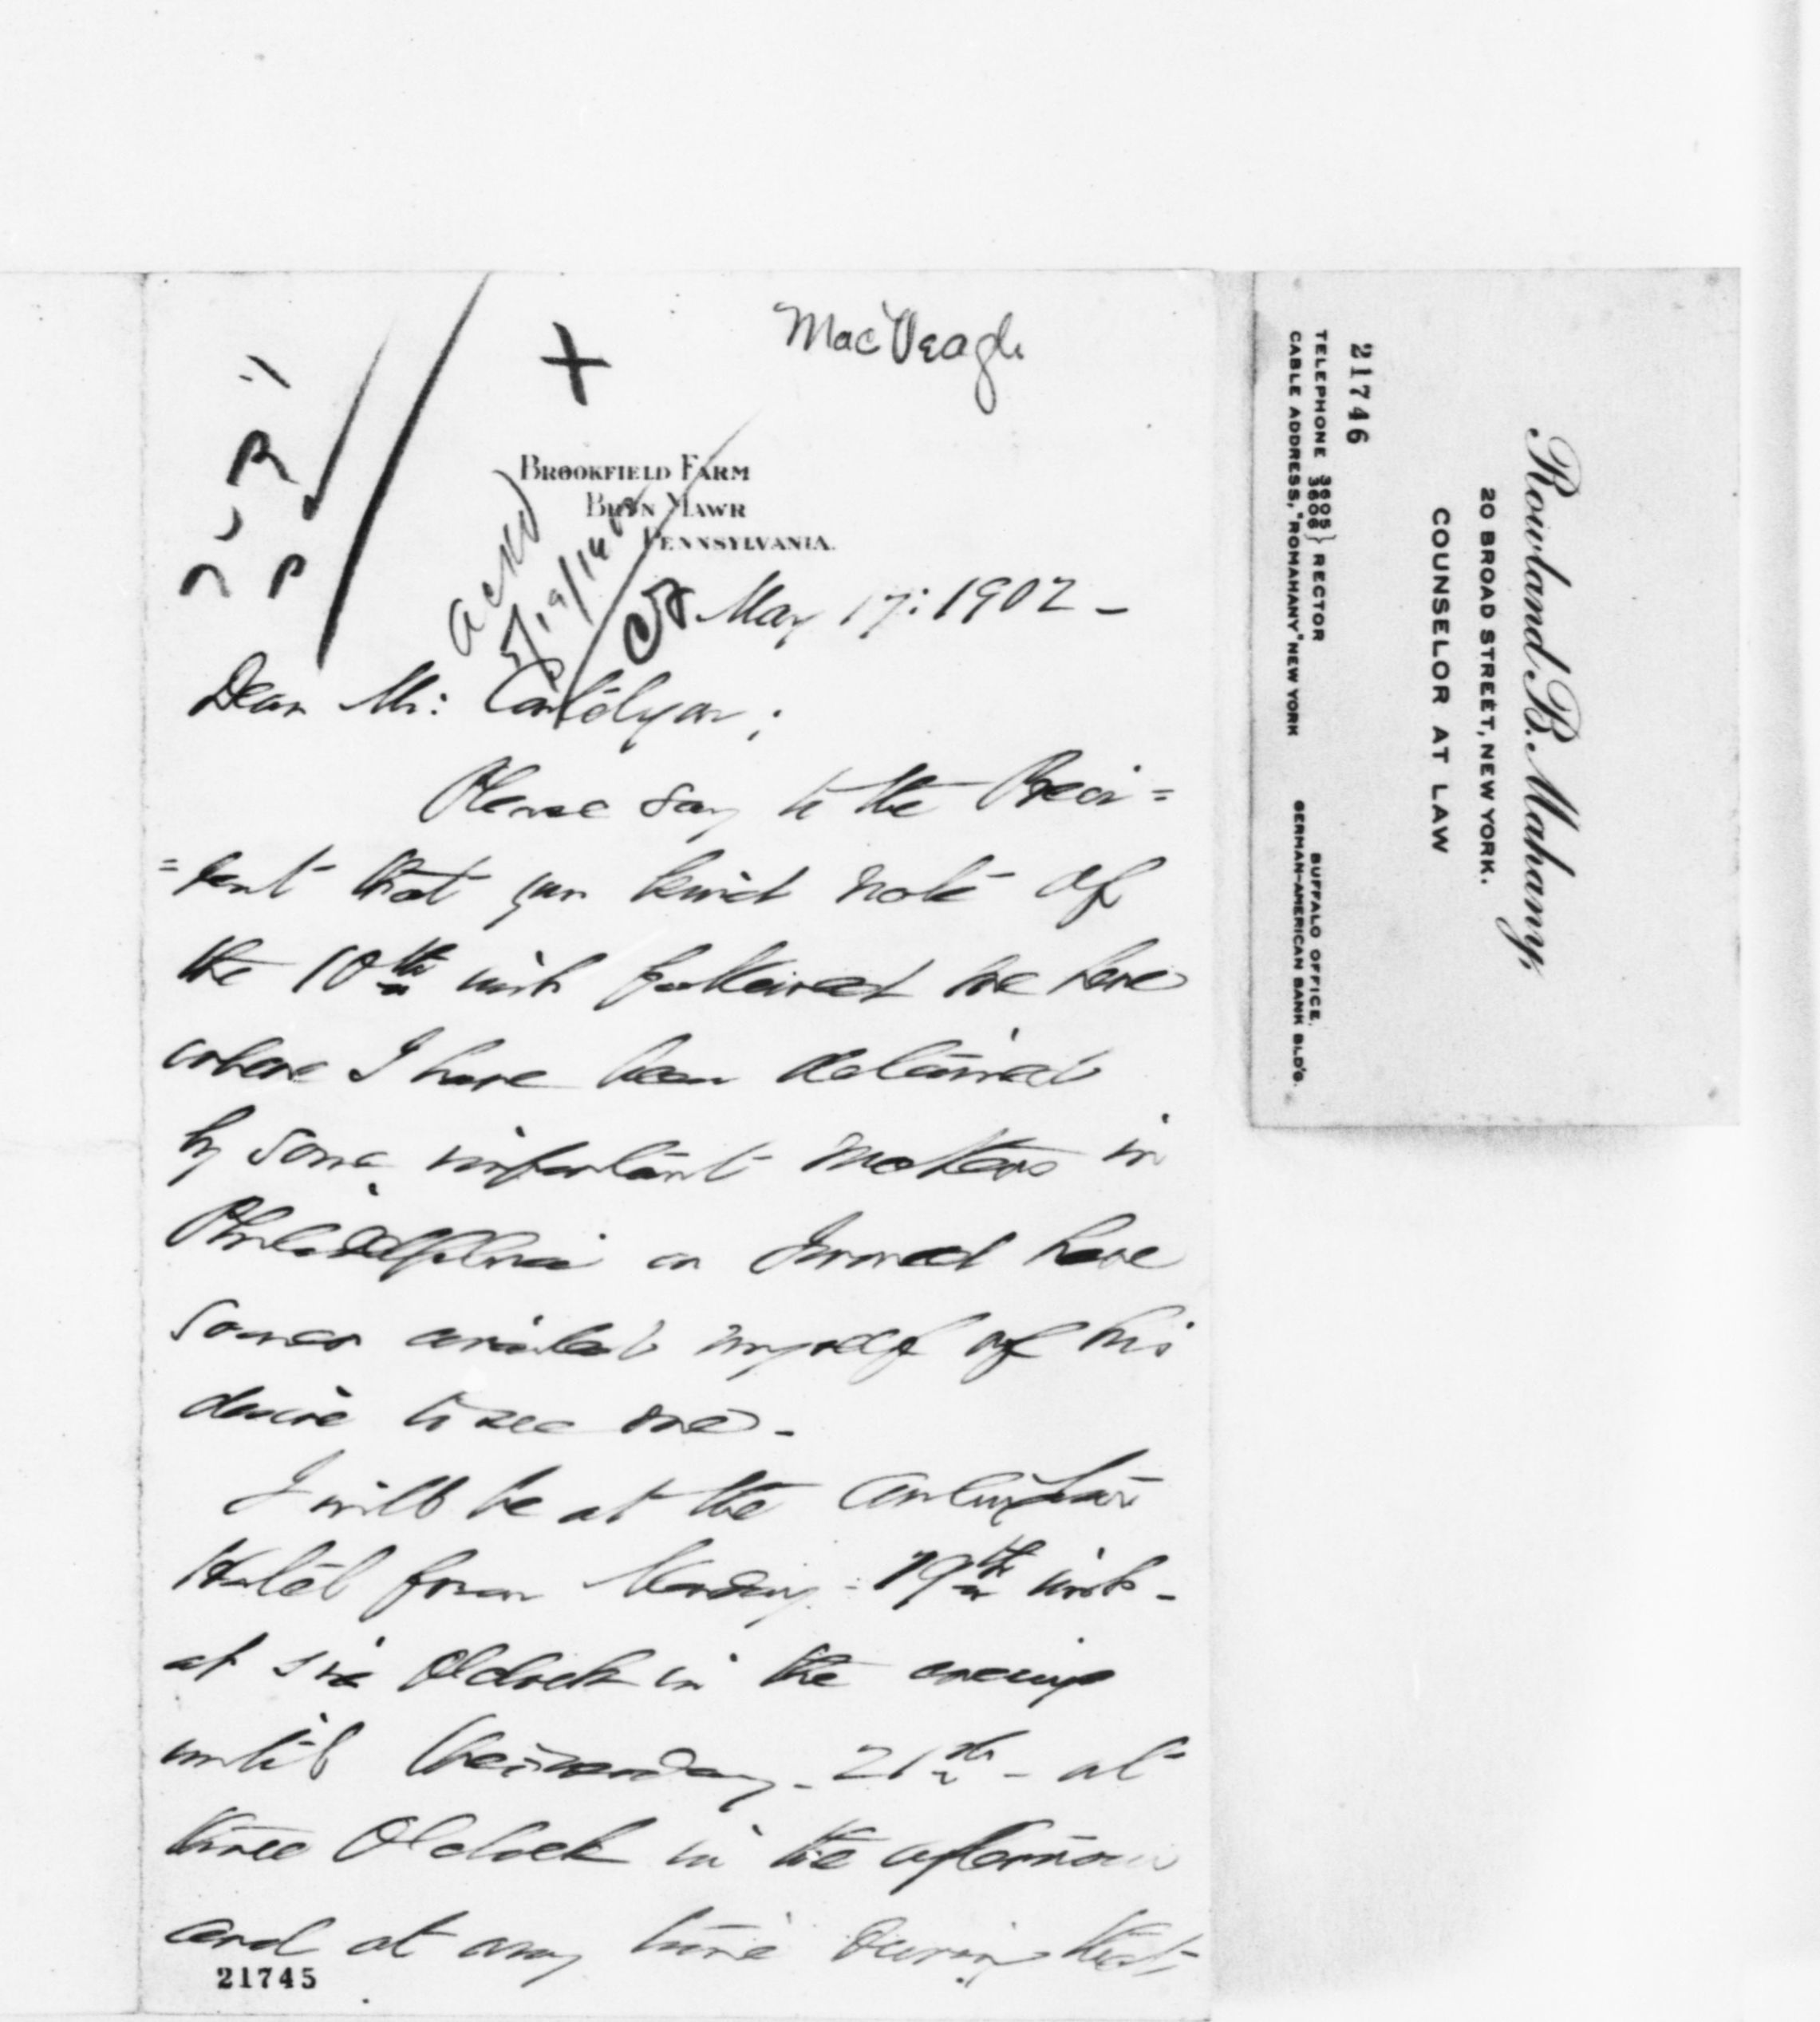 MacVeagh
+
BROOKFIELD FARM
BRYN MAWR
PENNSYLVANIA.
Ackd
5/19/1902
May 17: 1902 –
Dear Mr: Cortelyou;
Please say to the Presi=
=dent that your kind note of
the 10th inst followed me here
where I have been detained
by some important matters in
Philadelphia or I would have
sooner availed myself of his
desire to see me –
I will be at the Arlington
Hotel from Monday – 19th inst –
at six O'clock in the evening
until Wednesday – 21st – at
three O'clock in the afternoon
and at any time during that
21745
Rowland B. Mahany,
20 BROAD STREET, NEW YORK.
COUNSELOR AT LAW
21746
TELEPHONE 3605 3606 } RECTOR
CABLE ADDRESS, "ROMAHANY" NEW YORK
BUFFALO OFFICE,
GERMAN-AMERICAN BANK BLD'G.